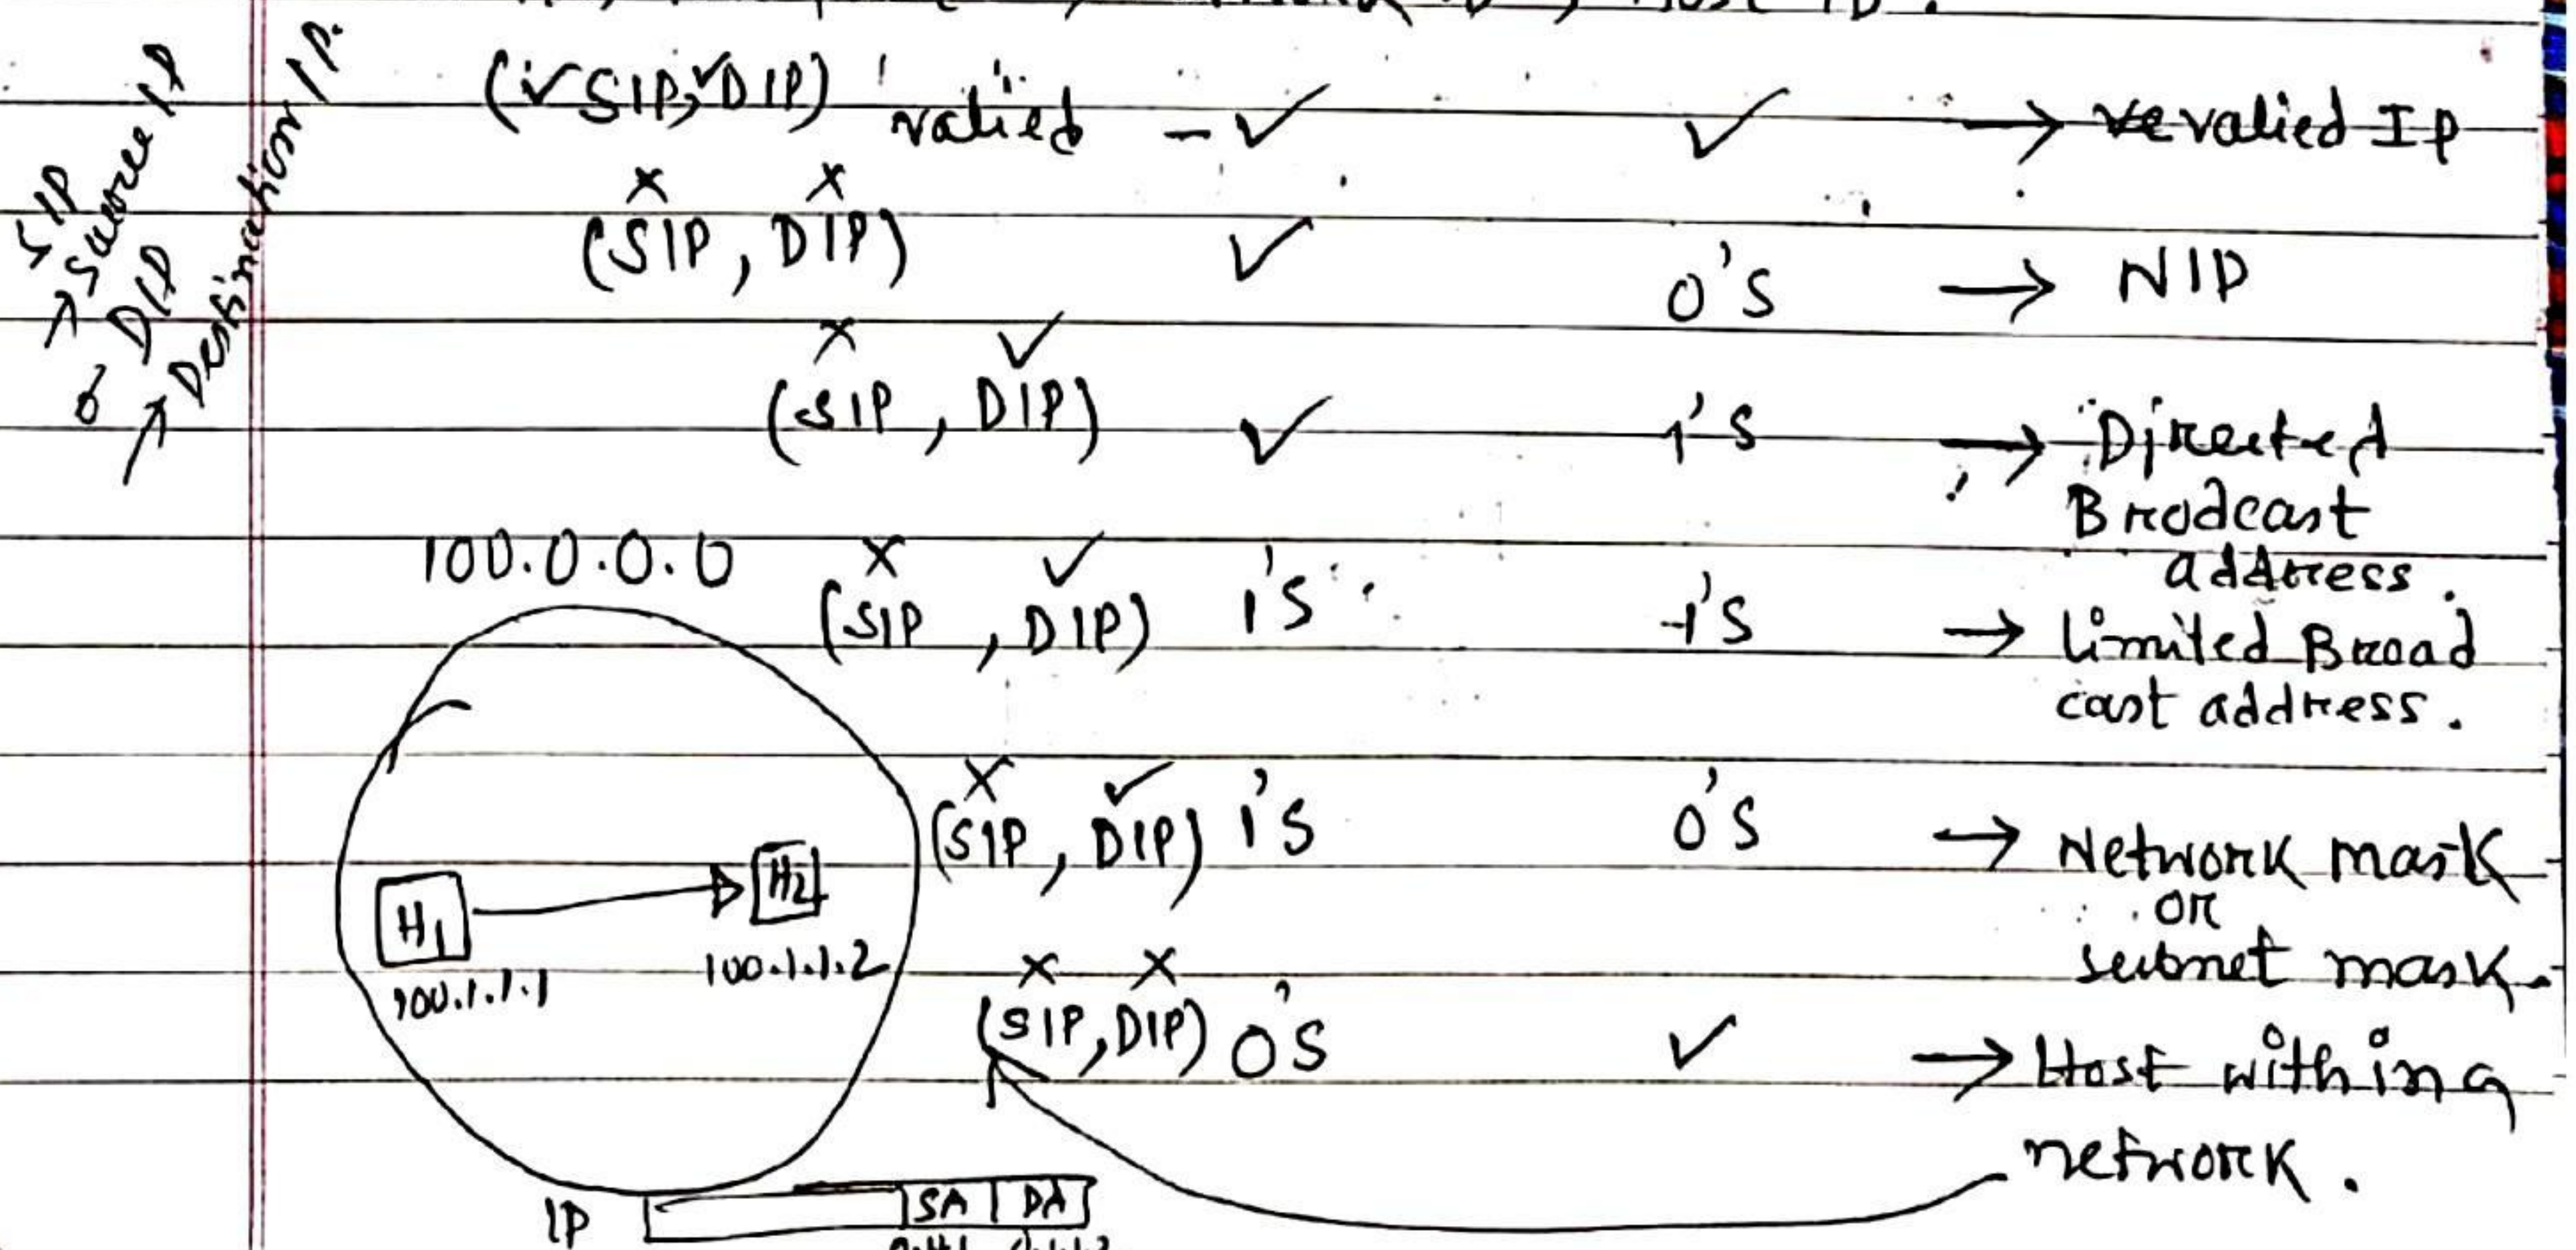 SIP
Source IP
& DIP
Destination IP.
(✓SIP, ✓DIP) valied - ✓ ✓ → valied IP
x x
(SIP, DIP) ✓ 0's → NID
x ✓
(SIP, DIP) ✓ 1's → Directed
Brodcast
address.
100.0.0.0
x ✓
(SIP, DIP) 1's 1's → Limited Broad
cast address.
x ✓
(SIP, DIP) 1's 0's → Network mask
or
subnet mask.
H1
H2
100.1.1.1
100.1.1.2
x x
(SIP, DIP) 0's ✓ → Host within a
network.
IP SA DA